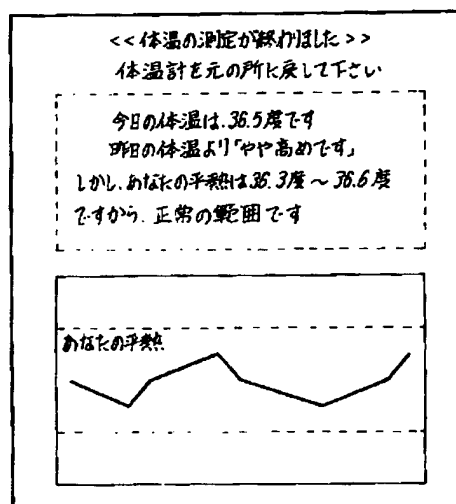 <<体温の測定が終わりました>>
体温計を元の所に戻して下さい
今日の体温は、36.5度です
昨日の体温より「やや高めです」
しかし、あなたの平熱は36.3度～36.6度
ですから、正常の範囲です
あなたの平熱